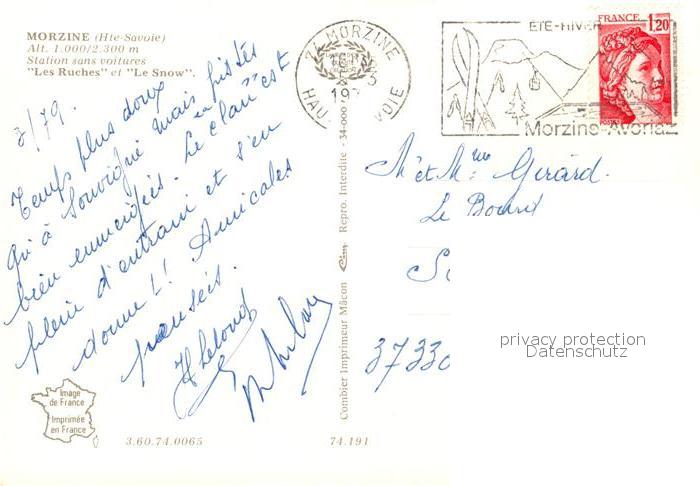 MORZINE (Hte-Savoie)
Alt. 1.000/2.300 m
Station sans voitures
"Les Ruches" et "Le Snow".
3/79.
Temps plus doux
qu'à Souvigné mais pistes
bien enneigées. Le "clan" est
plein d'entrain et s'en
donne !! Amicales
pensées.
Image
de France
Imprimée
en France
3.60.74.0065
74.191
Combier Imprimeur Mâcon Cim Repro. Interdite - 34-000
74 MORZINE
197
HAU VOIE
ETE-HIVER
Morzine-Avoriaz
FRANCE
1,20
POSTES
M. et Mme Gérard.
Le
37330
privacy protection
Datenschutz